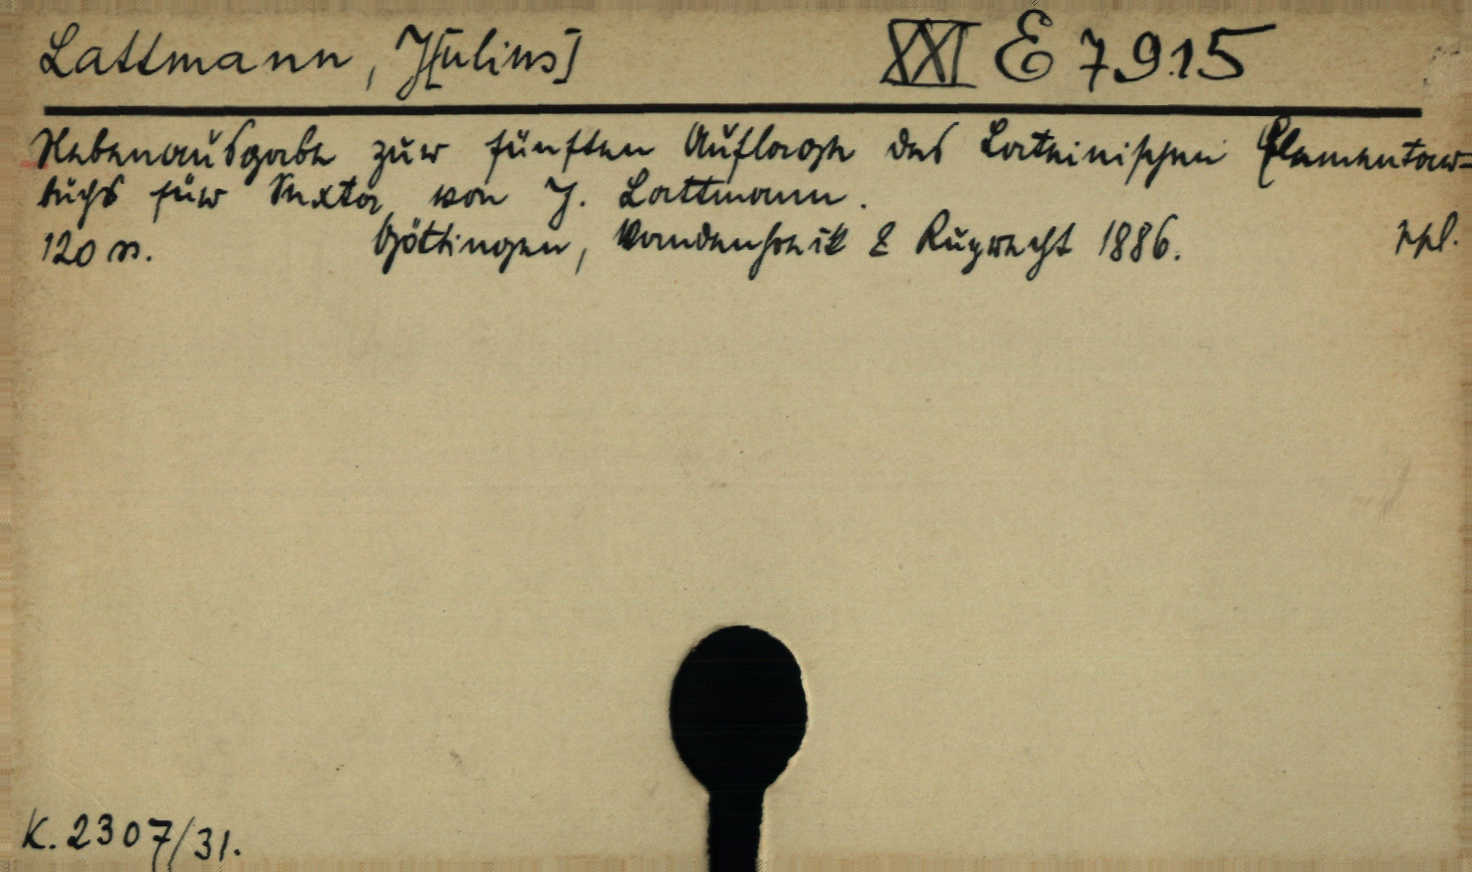 Lattmann, J[ulius] XXI E 7915
Nebenausgabe zur fünften Auflage des Lateinischen Elementar-
buchs für Sexta von J. Lattmann.
120 S. Göttingen, Vandenhoeck & Ruprecht 1886. ppl.
K. 2307/31.